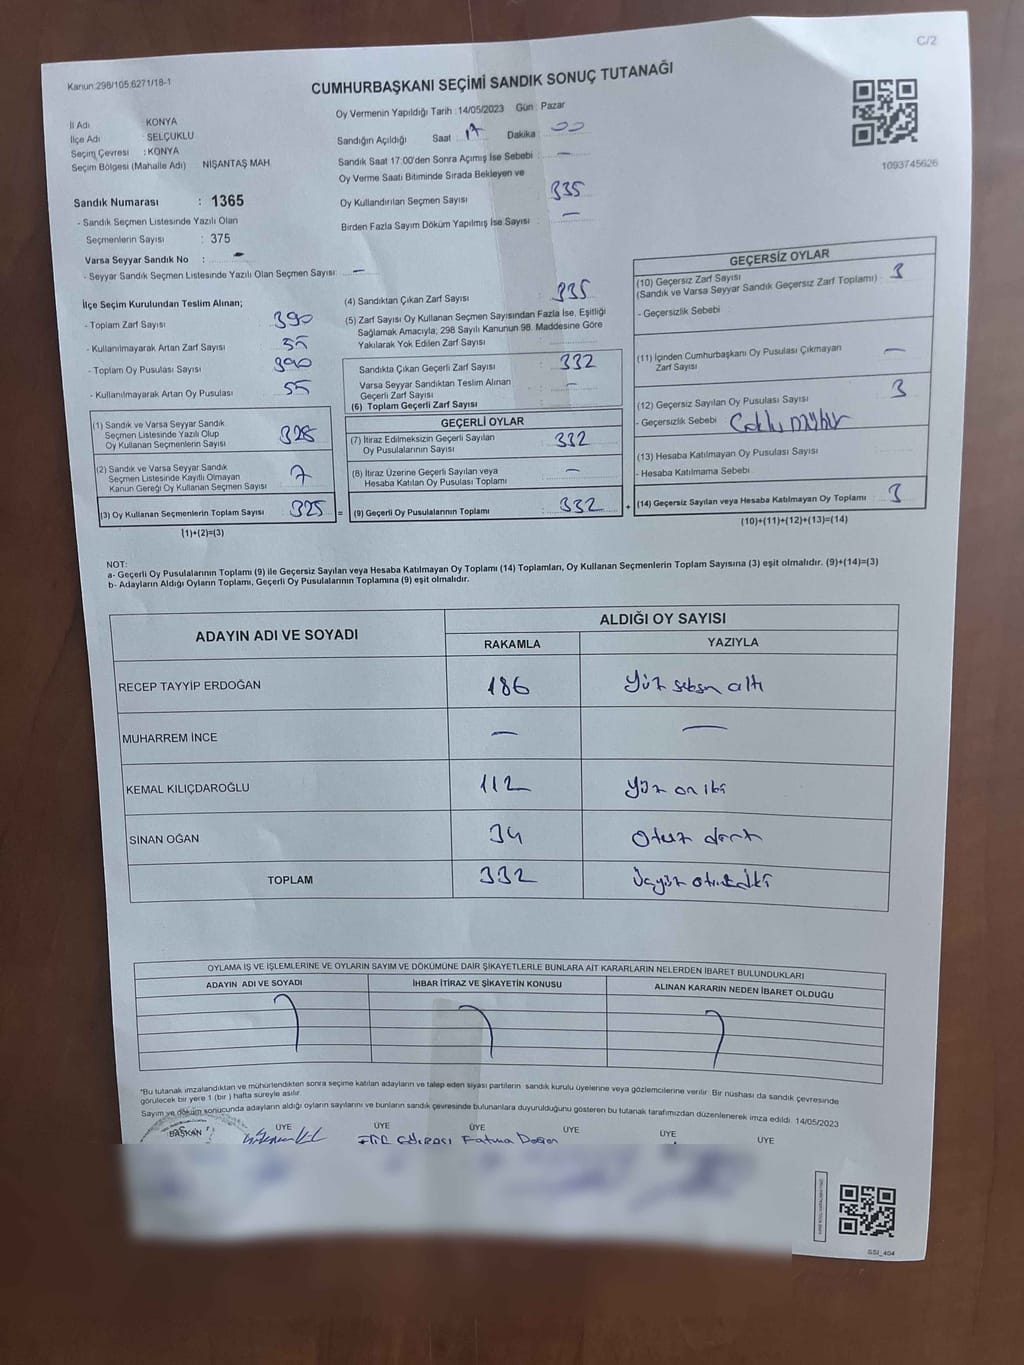 C/2
Kanun:298/105.6271/18-1
CUMHURBAŞKANI SEÇİMİ SANDIK SONUÇ TUTANAĞI
1093745626
İl Adı : KONYA
İlçe Adı : SELÇUKLU
Seçim Çevresi : KONYA
Seçim Bölgesi (Mahalle Adı) NİŞANTAŞ MAH.
Sandık Numarası : 1365
- Sandık Seçmen Listesinde Yazılı Olan
Seçmenlerin Sayısı : 375
Varsa Seyyar Sandık No : -
- Seyyar Sandık Seçmen Listesinde Yazılı Olan Seçmen Sayısı: -
Oy Vermenin Yapıldığı Tarih : 14/05/2023 Gün : Pazar
Sandığın Açıldığı Saat : 17 Dakika : 00
Sandık Saat 17:00'den Sonra Açımış İse Sebebi : -
Oy Verme Saati Bitiminde Sırada Bekleyen ve
Oy Kullandırılan Seçmen Sayısı : 335
Birden Fazla Sayım Döküm Yapılmış İse Sayısı : -
İlçe Seçim Kurulundan Teslim Alınan;
- Toplam Zarf Sayısı : 390
- Kullanılmayarak Artan Zarf Sayısı : 55
- Toplam Oy Pusulası Sayısı : 390
- Kullanılmayarak Artan Oy Pusulası : 55
(1) Sandık ve Varsa Seyyar Sandık
Seçmen Listesinde Yazılı Olup
Oy Kullanan Seçmenlerin Sayısı : 328
(2) Sandık ve Varsa Seyyar Sandık
Seçmen Listesinde Kayıtlı Olmayan
Kanun Gereği Oy Kullanan Seçmen Sayısı : 7
(3) Oy Kullanan Seçmenlerin Toplam Sayısı : 325 =
(1)+(2)=(3)
(4) Sandıktan Çıkan Zarf Sayısı : 335
(5) Zarf Sayısı Oy Kullanan Seçmen Sayısından Fazla İse, Eşitliği
Sağlamak Amacıyla; 298 Sayılı Kanunun 98. Maddesine Göre
Yakılarak Yok Edilen Zarf Sayısı :
Sandıkta Çıkan Geçerli Zarf Sayısı : 332
Varsa Seyyar Sandıktan Teslim Alınan
Geçerli Zarf Sayısı : -
(6) Toplam Geçerli Zarf Sayısı
GEÇERLİ OYLAR
(7) İtiraz Edilmeksizin Geçerli Sayılan
Oy Pusulalarının Sayısı : 332
(8) İtiraz Üzerine Geçerli Sayılan veya
Hesaba Katılan Oy Pusulası Toplamı : -
(9) Geçerli Oy Pusulalarının Toplamı : 332 +
GEÇERSİZ OYLAR
(10) Geçersiz Zarf Sayısı
(Sandık ve Varsa Seyyar Sandık Geçersiz Zarf Toplamı) : 3
- Geçersizlik Sebebi
(11) İçinden Cumhurbaşkanı Oy Pusulası Çıkmayan
Zarf Sayısı : -
(12) Geçersiz Sayılan Oy Pusulası Sayısı : 3
- Geçersizlik Sebebi :
(13) Hesaba Katılmayan Oy Pusulası Sayısı
- Hesaba Katılmama Sebebi :
(14) Geçersiz Sayılan veya Hesaba Katılmayan Oy Toplamı : 3
(10)+(11)+(12)+(13)=(14)
NOT:
a- Geçerli Oy Pusulalarının Toplamı (9) ile Geçersiz Sayılan veya Hesaba Katılmayan Oy Toplamı (14) Toplamları, Oy Kullanan Seçmenlerin Toplam Sayısına (3) eşit olmalıdır. (9)+(14)=(3)
b- Adayların Aldığı Oyların Toplamı, Geçerli Oy Pusulalarının Toplamına (9) eşit olmalıdır.
ADAYIN ADI VE SOYADI ALDIĞI OY SAYISI
RAKAMLA YAZIYLA
RECEP TAYYİP ERDOĞAN 186 Yüz seksen altı
MUHARREM İNCE - -
KEMAL KILIÇDAROĞLU 112 Yüz on iki
SİNAN OĞAN 34 Otuz dört
TOPLAM 332 Üçyüz otuz iki
OYLAMA İŞ VE İŞLEMLERİNE VE OYLARIN SAYIM VE DÖKÜMÜNE DAİR ŞİKAYETLERLE BUNLARA AİT KARARLARIN NELERDEN İBARET BULUNDUKLARI
ADAYIN ADI VE SOYADI İHBAR İTİRAZ VE ŞİKAYETİN KONUSU ALINAN KARARIN NEDEN İBARET OLDUĞU
"Bu tutanak imzalandıktan ve mühürlendikten sonra seçime katılan adayların ve talep eden siyasi partilerin sandık kurulu üyelerine veya gözlemcilerine verilir. Bir nüshası da sandık çevresinde
görülecek bir yere 1 (bir ) hafta süreyle asılır.
Sayım ve döküm sonucunda adayların aldığı oyların sayılarını ve bunların sandık çevresinde bulunanlara duyurulduğunu gösteren bu tutanak tarafımızdan düzenlenerek imza edildi. 14/05/2023
BAŞKAN ÜYE ÜYE ÜYE ÜYE ÜYE ÜYE
Fatma Doğan
SSI_404